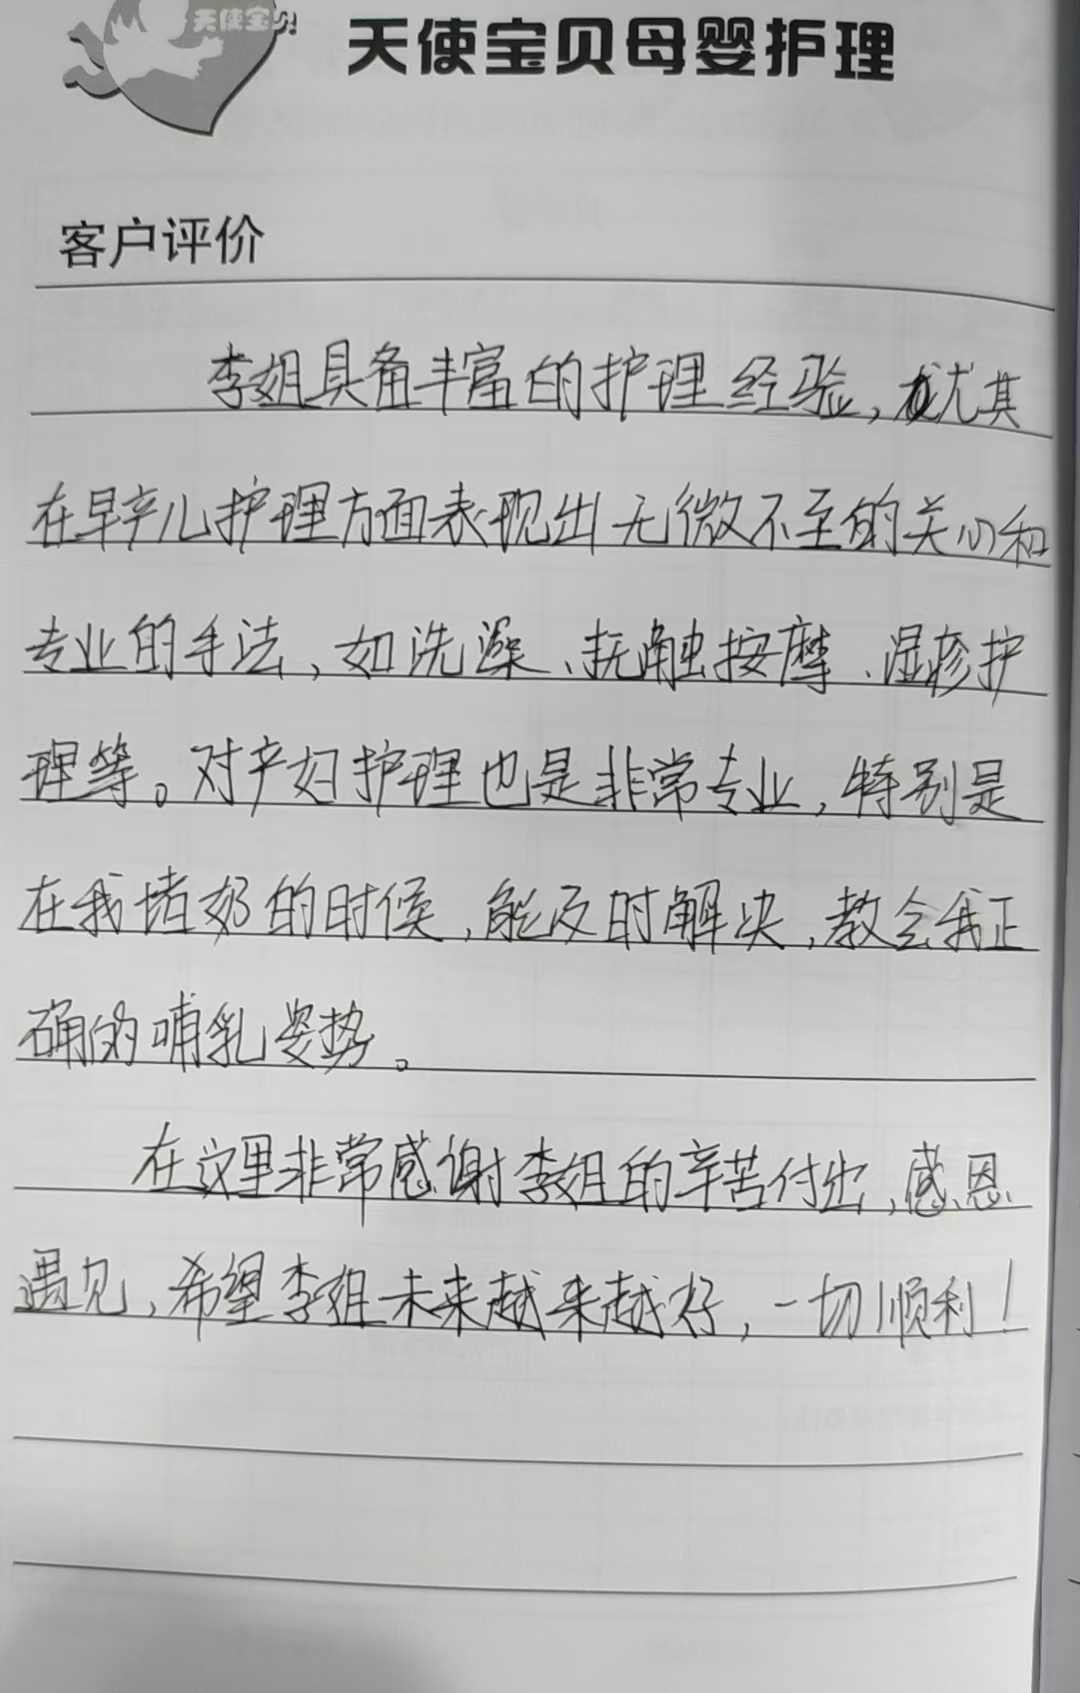 天使宝贝
天使宝贝母婴护理
客户评价
李姐具备丰富的护理经验，尤其
在早产儿护理方面表现出无微不至的关心和
专业的手法，如洗澡、抚触按摩、湿疹护
理等。对产妇护理也是非常专业，特别是
在我堵奶的时候，能及时解决，教会我正
确的哺乳姿势。
在这里非常感谢李姐的辛苦付出，感恩
遇见，希望李姐未来越来越好，一切顺利！